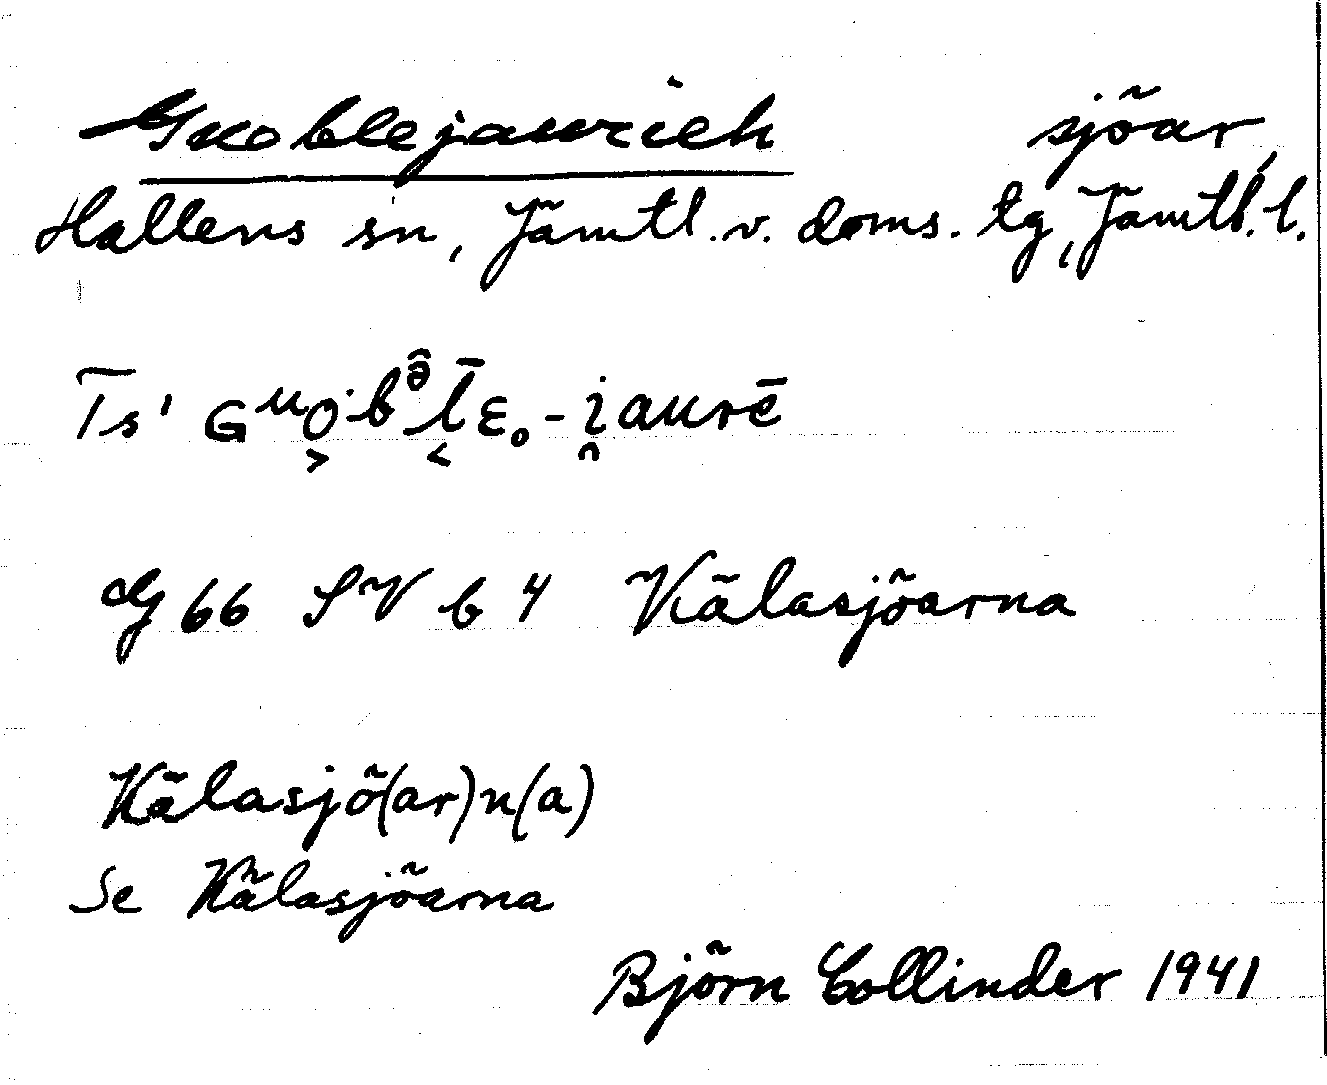 Guoblejaurieh sjöar,
Hallens sn, Jämtl. v. doms. tg, Jämtl. l.
Ts' Gᵘo̭·bᵊ̂l̄ε˳-i̯aurē
G 66 SV b 4 Kälasjöarna
Kälasjö(ar)n(a)
Se Kälasjöarna
Björn Collinder 1941